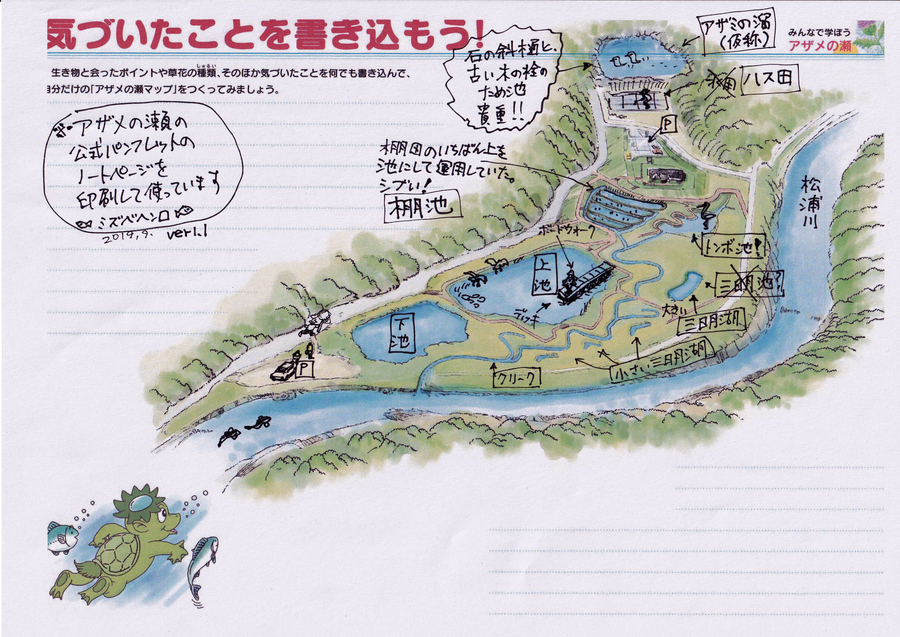 気づいたことを書き込もう!
生き物と会ったポイントや草花の種類、そのほか気づいたことを何でも書き込んで、
自分だけの「アザメの瀬マップ」をつくってみましょう。
みんなで学ぼう
アザメの瀬
アザメの瀬の
公式パンフレットの
ノートページを
印刷して使っています
ミズベヘンロ
2019,9. ver1.1
石の斜樋と、
古い木の栓の
ため池
貴重!!
アザミの溜
(仮称)
ハス田
P
棚田のいちばん上を
池にして運用していた。
シブい!
棚池
松浦川
ボードウォーク
トンボ池!
上池
デッキ
三日月池?
大きい
三日月湖
下池
小さい三日月湖
P
クリーク